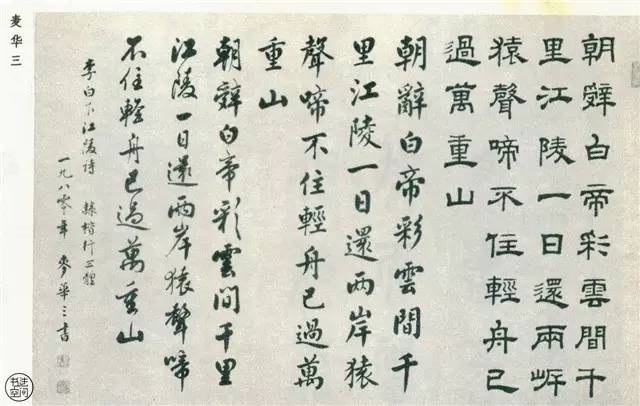 朝辭白帝彩雲間千
里江陵一日還兩岸
猿聲啼不住輕舟已
過萬重山
朝辭白帝彩雲間千
里江陵一日還两岸猿
聲啼不住輕舟已過萬
重山
朝辭白帝彩雲間千里
江陵一日還两岸猿聲啼
不住輕舟已過萬重山
李白下江陵诗 隸楷行三體
一九八零年 麥華三書
麦华三
书法
空间